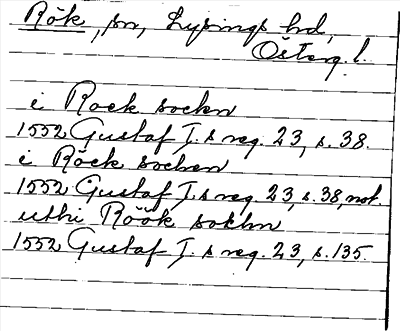 Rök, sn, Lysings hd,
Österg. l.
i Roek sockn
1552 Gustaf I. s reg. 23, s. 38.
i Röck sochen
1552 Gustaf I. s reg. 23, s. 38, not.
uthi Röök sokhn
1552 Gustaf I. s reg. 23, s. 135.